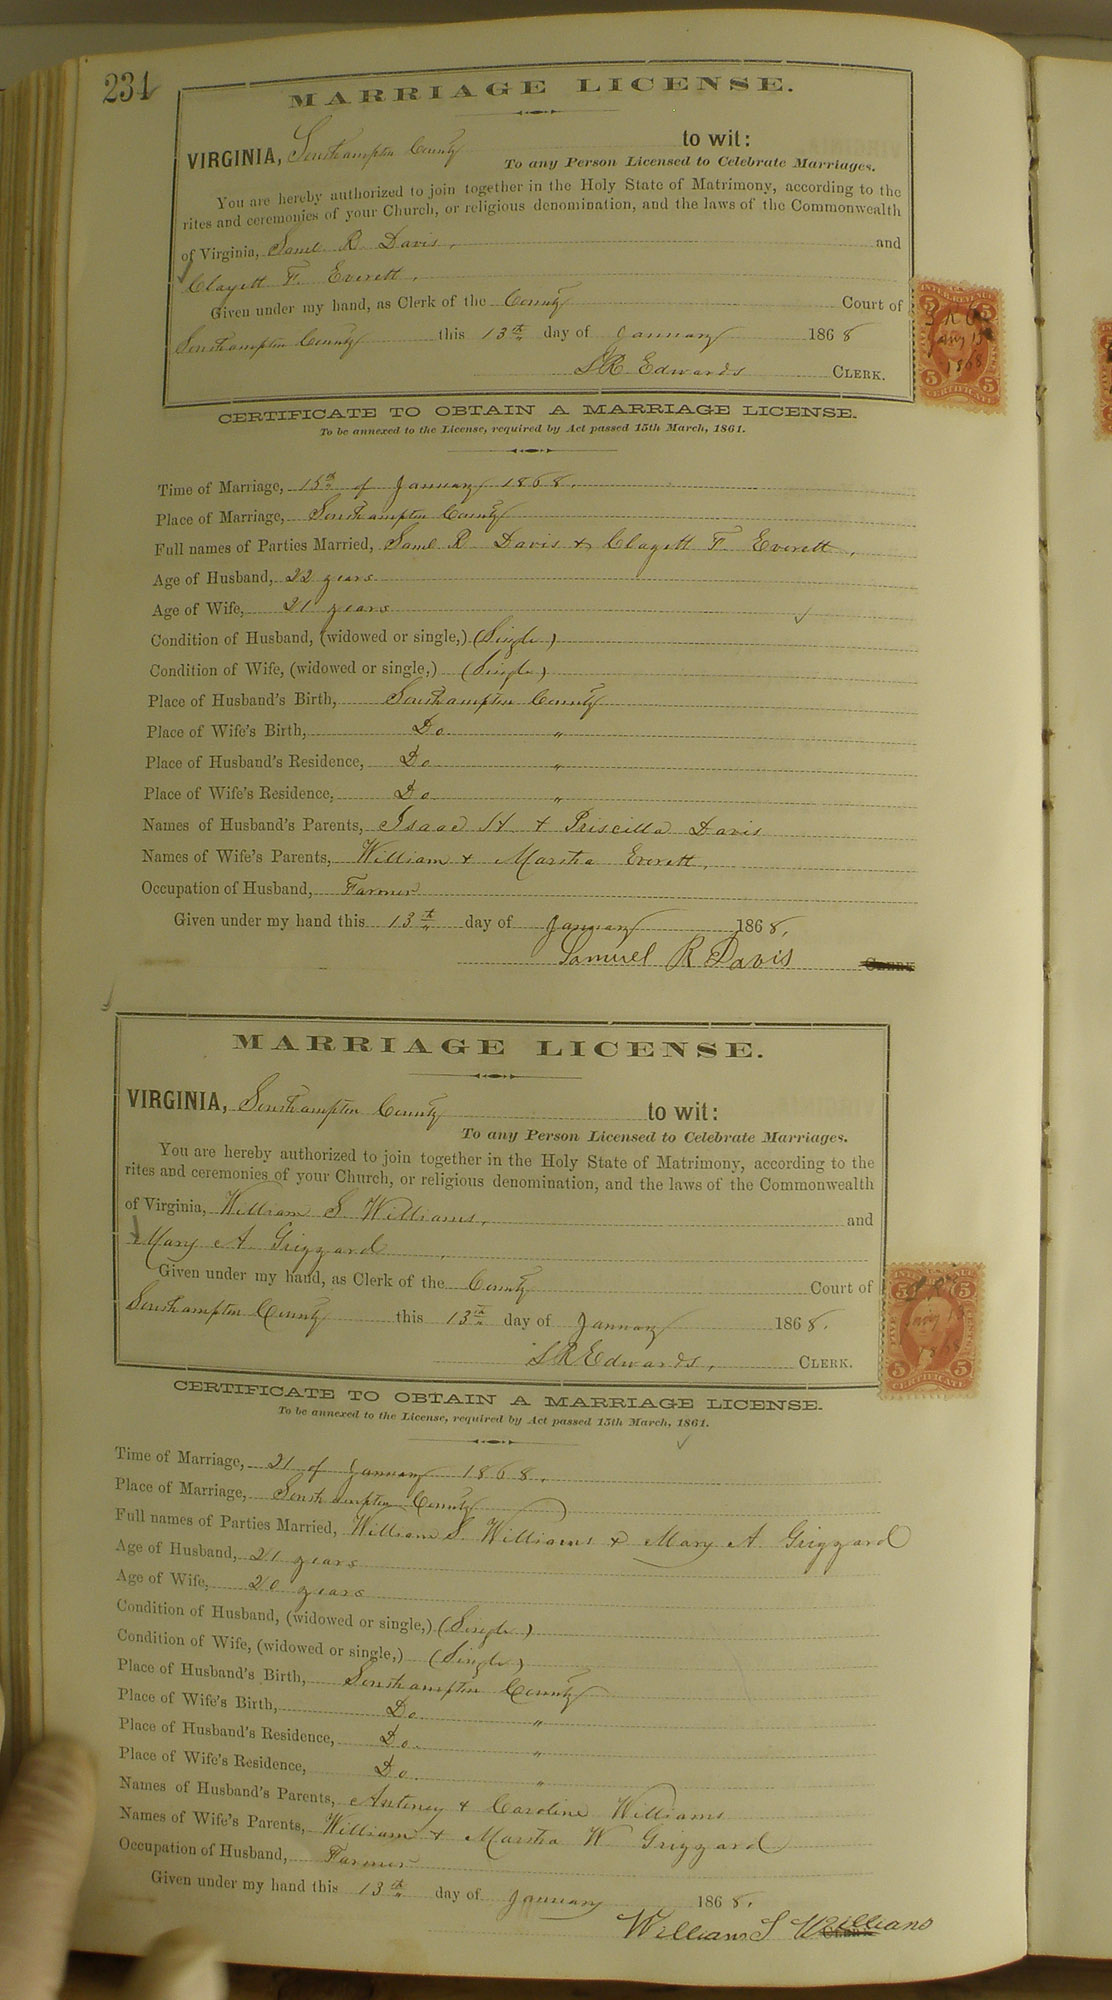 234
MARRIAGE LICENSE.
VIRGINIA, Southampton County to wit:
To any Person Licensed to Celebrate Marriages.
You are hereby authorized to join together in the Holy State of Matrimony, according to the
rites and ceremonies of your Church, or religious denomination, and the laws of the Commonwealth
of Virginia, Saml R Davis, and
Clayett F. Everett.
Given under my hand, as Clerk of the County Court of
Southampton County this 13th day of January 1868
LR Edwards CLERK.
INTER. REVENUE
5 5
Jany 13
1868
5 5
CERTIFICATE
CERTIFICATE TO OBTAIN A MARRIAGE LICENSE.
To be annexed to the License, required by Act passed 15th March, 1861.
Time of Marriage, 15th of January 1868.
Place of Marriage, Southampton County
Full names of Parties Married, Saml R Davis & Clayett F. Everett.
Age of Husband, 22 years
Age of Wife, 21 years
Condition of Husband, (widowed or single,) (Single)
Condition of Wife, (widowed or single,) (Single)
Place of Husband's Birth, Southampton County
Place of Wife's Birth, Do. "
Place of Husband's Residence, Do "
Place of Wife's Residence, Do "
Names of Husband's Parents, Isaac H + Priscilla Davis
Names of Wife's Parents, William + Martha Everett.
Occupation of Husband, Farmer
Given under my hand this 13th day of January 1868.
Samuel R Davis CLERK
MARRIAGE LICENSE.
VIRGINIA, Southampton County to wit:
To any Person Licensed to Celebrate Marriages.
You are hereby authorized to join together in the Holy State of Matrimony, according to the
rites and ceremonies of your Church, or religious denomination, and the laws of the Commonwealth
of Virginia, William S Williams, and
Mary A. Grizzard.
Given under my hand, as Clerk of the County Court of
Southampton County this 13th day of January 1868.
LR Edwards, CLERK.
5 5
Jany 13
1868
5 5
CERTIFICATE
CERTIFICATE TO OBTAIN A MARRIAGE LICENSE.
To be annexed to the License, required by Act passed 15th March, 1861.
Time of Marriage, 21 of January 1868.
Place of Marriage, Southampton County
Full names of Parties Married, William S. Williams & Mary A Grizzard
Age of Husband, 21 years
Age of Wife, 20 years
Condition of Husband, (widowed or single,) (Single)
Condition of Wife, (widowed or single,) (Single)
Place of Husband's Birth, Southampton County
Place of Wife's Birth, Do. "
Place of Husband's Residence, Do. "
Place of Wife's Residence, Do. "
Names of Husband's Parents, Anteney + Caroline Williams
Names of Wife's Parents, William + Martha W Grizzard
Occupation of Husband, Farmer
Given under my hand this 13th day of January 1868.
William S Williams CLERK